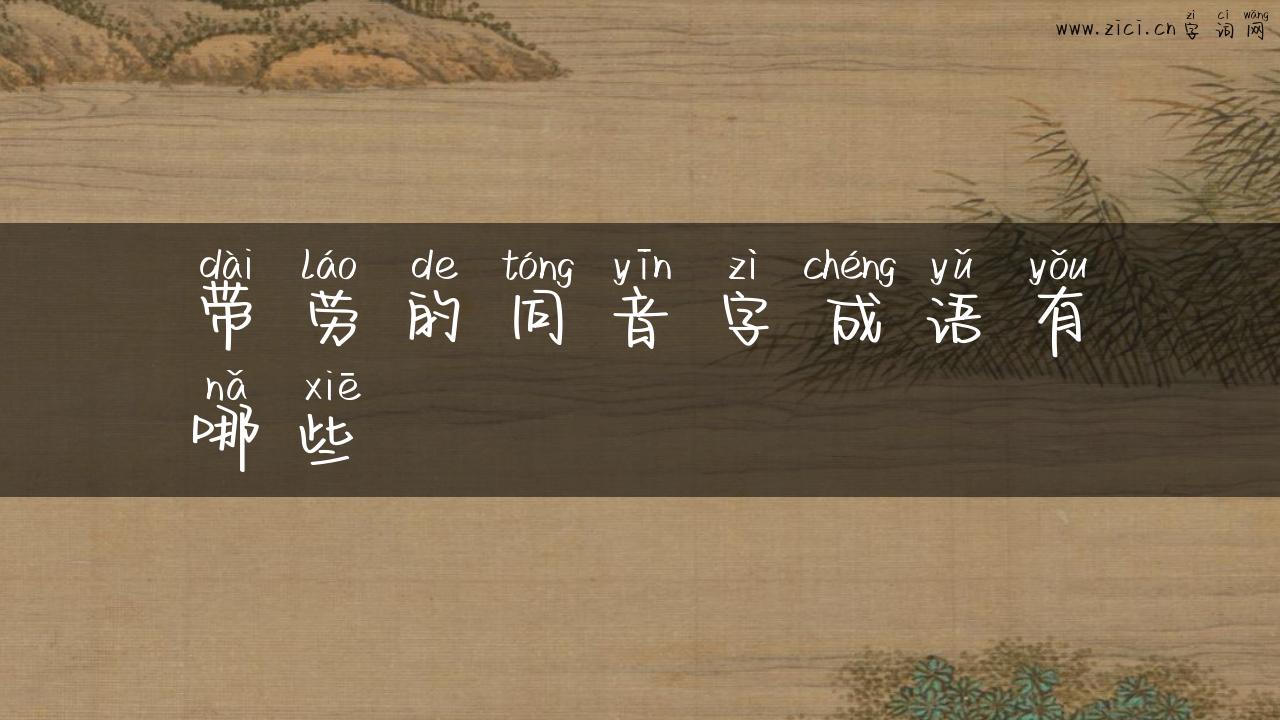 zì cí wǎng
www.zici.cn 字词网
dài láo de tóng yīn zì chéng yǔ yǒu
带劳的同音字成语有
nǎ xiē
哪些